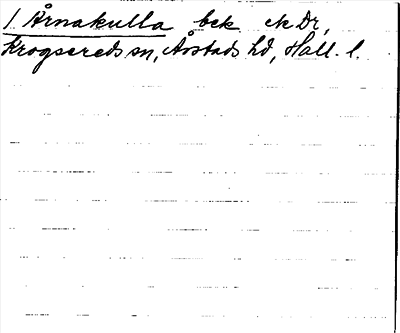 1. Årnakulla bek ek Dr,
Krogsereds sn, Årstads hd, Hall. l.